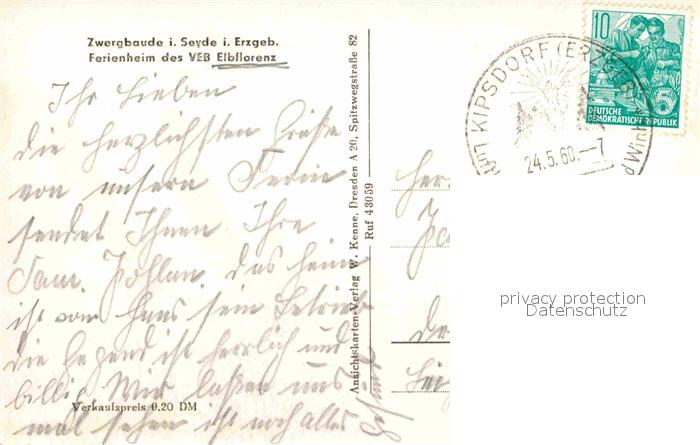 Zwergbaude i. Seyde i. Erzgeb.
Ferienheim des VEB Elbflorenz
Ihr Lieben
die herzlichsten Grüße
von unsern Ferien
sendet Ihnen Ihre
Fam. Pohlan. das heim
ist vom Hans sein Betrieb
die Gegend ist herrlich und
billig. Wir lassen uns
mal sehen ist noch alles
Verkaufspreis 0.20 DM
Ansichtskarten-Verlag W. Kenne, Dresden A 20, Spitzwegstraße 82
Ruf 43059
KIPSDORF (ERZGEB.)
24.5.60.–7
10
5
DEUTSCHE
DEMOKRATISCHE REPUBLIK
privacy protection
Datenschutz